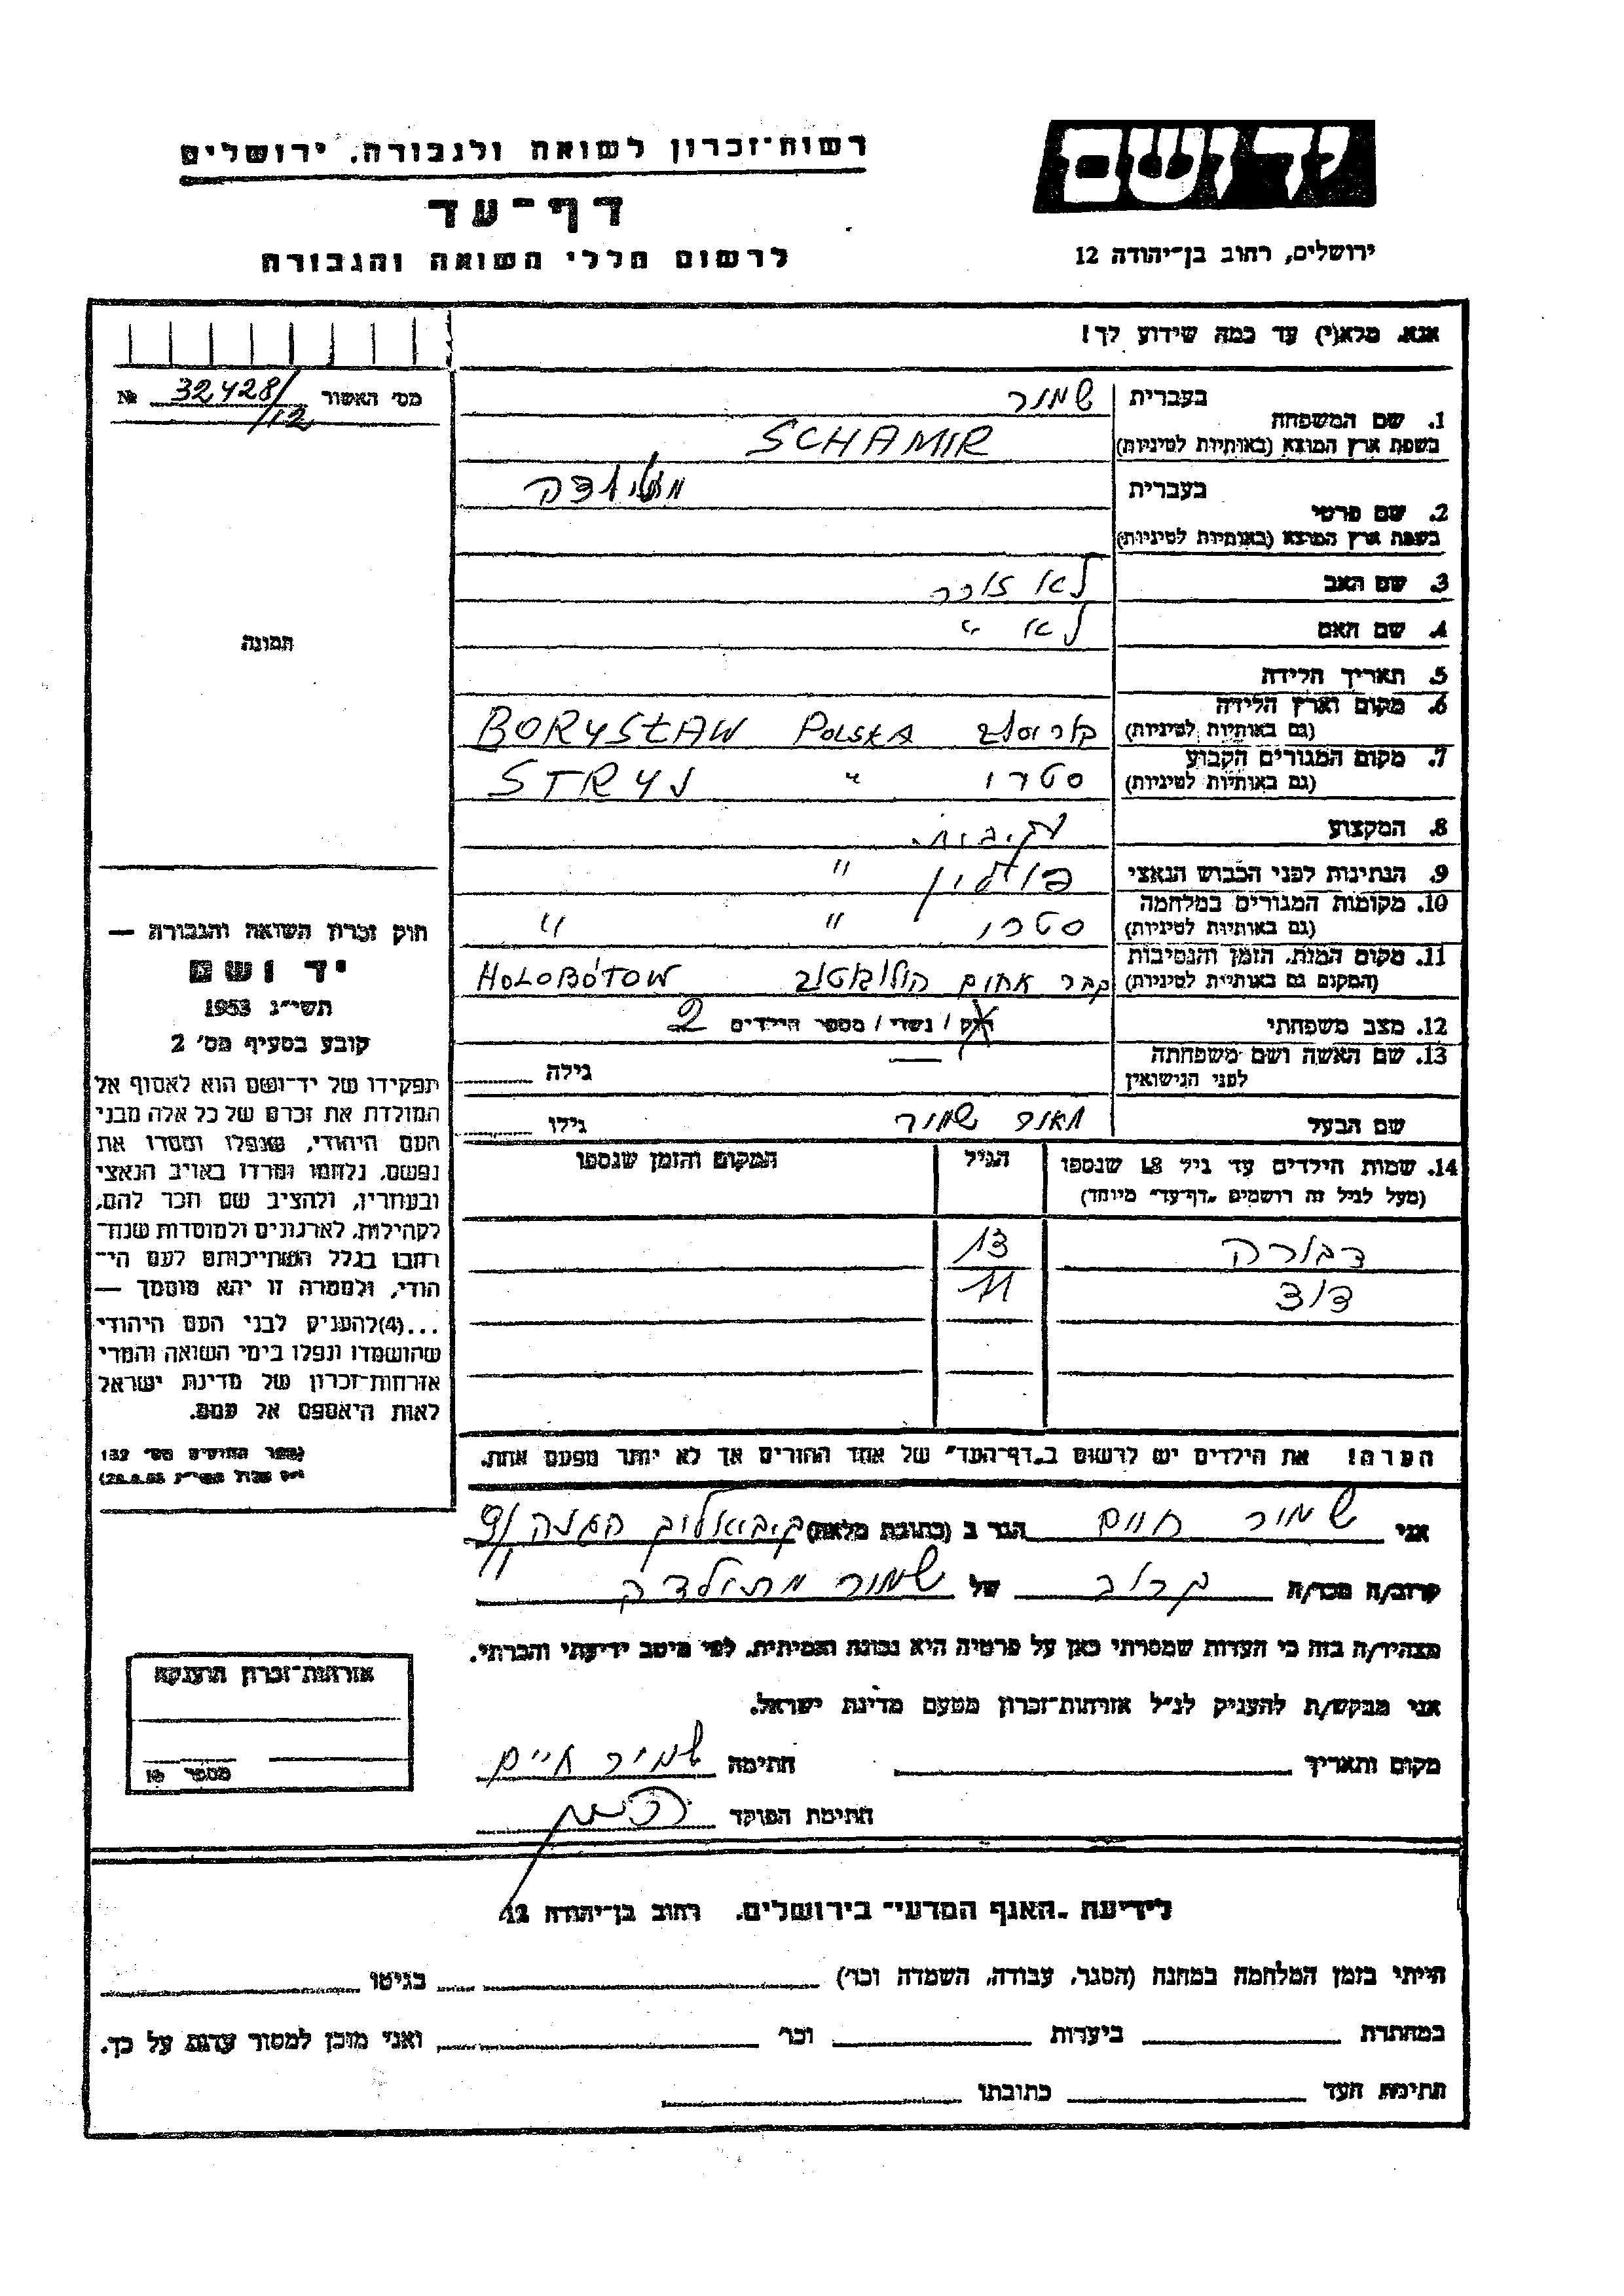 יד ושם
ירושלים, רחוב בן־יהודה 12
רשות־זכרון לשואה ולגבורה, ירושלים
דף־עד
לרשום חללי השואה והגבורה
אנא, מלא(י) עד כמה שידוע לך!
מס׳ האשור 32428/12 №
1. שם המשפחה
בעברית שמיר
בשפת ארץ המוצא (באותיות לטיניות) SCHAMIR
2. שם פרטי
בעברית מתילדה
בשפת ארץ המוצא (באותיות לטיניות)
3. שם האב לא זוכר
4. שם האם לא "
5. תאריך הלידה
6. מקום וארץ הלידה
(גם באותיות לטיניות) בוריסלב POLSKA BORYSŁAW
7. מקום המגורים הקבוע
(גם באותיות לטיניות) סטרי " STRYJ
8. המקצוע
9. הנתינות לפני הכבוש הנאצי "
10. מקומות המגורים במלחמה
(גם באותיות לטיניות) סטרי " "
11. מקום המות, הזמן והנסיבות
(המקום גם באותיות לטיניות) קבר אחים הולובוטוב HOLOBÓTOW
12. מצב משפחתי רווק / נשוי / מספר הילדים 2
13. שם האשה ושם משפחתה
לפני הנישואין — גילה
שם הבעל שמיר גילו
14. שמות הילדים עד גיל 18 שנספו הגיל המקום והזמן שנספו
(מעל לגיל זה רושמים „דף־עד" מיוחד)
דבורה 13
דוד 11
הערה! את הילדים יש לרשום ב„דף־העד" של אחד ההורים אך לא יותר מפעם אחת.
תמונה
חוק זכרון השואה והגבורה —
יד ושם
תשי״ג 1953
קובע בסעיף מס׳ 2
תפקידו של יד־ושם הוא לאסוף אל
המולדת את זכרם של כל אלה מבני
העם היהודי, שנפלו ומסרו את
נפשם, נלחמו ומרדו באויב הנאצי
ובעוזריו, ולהציב שם וזכר להם,
לקהילות, לארגונים ולמוסדות שנח־
רבו בגלל השתייכותם לעם הי־
הודי, ולמטרה זו יהא מוסמך —
...(4) להעניק לבני העם היהודי
שהושמדו ונפלו בימי השואה והמרי
אזרחות־זכרון של מדינת ישראל
לאות היאספם אל עמם.
(ספר החוקים מס׳ 132
אני שמיר חיים הגר ב (כתובת מלאה) ק. ביאליק 9/
קרוב/ה מכר/ה קרוב של שמיר מתילדה
מצהיר/ה בזה כי העדות שמסרתי כאן על פרטיה היא נכונה ואמיתית, לפי מיטב ידיעתי והכרתי.
אני מבקש/ת להעניק לנ״ל אזרחות־זכרון מטעם מדינת ישראל.
מקום ותאריך חתימה שמיר חיים
חתימת הפוקד
אזרחות־זכרון הוענקה
מספר
לידיעת „האגף המדעי" בירושלים, רחוב בן־יהודה 12
הייתי בזמן המלחמה במחנה (הסגר, עבודה, השמדה וכו׳) בגיטו
במחתרת ביערות וכו׳ ואני מוכן למסור עדות על כך.
חתימת העד כתובתו